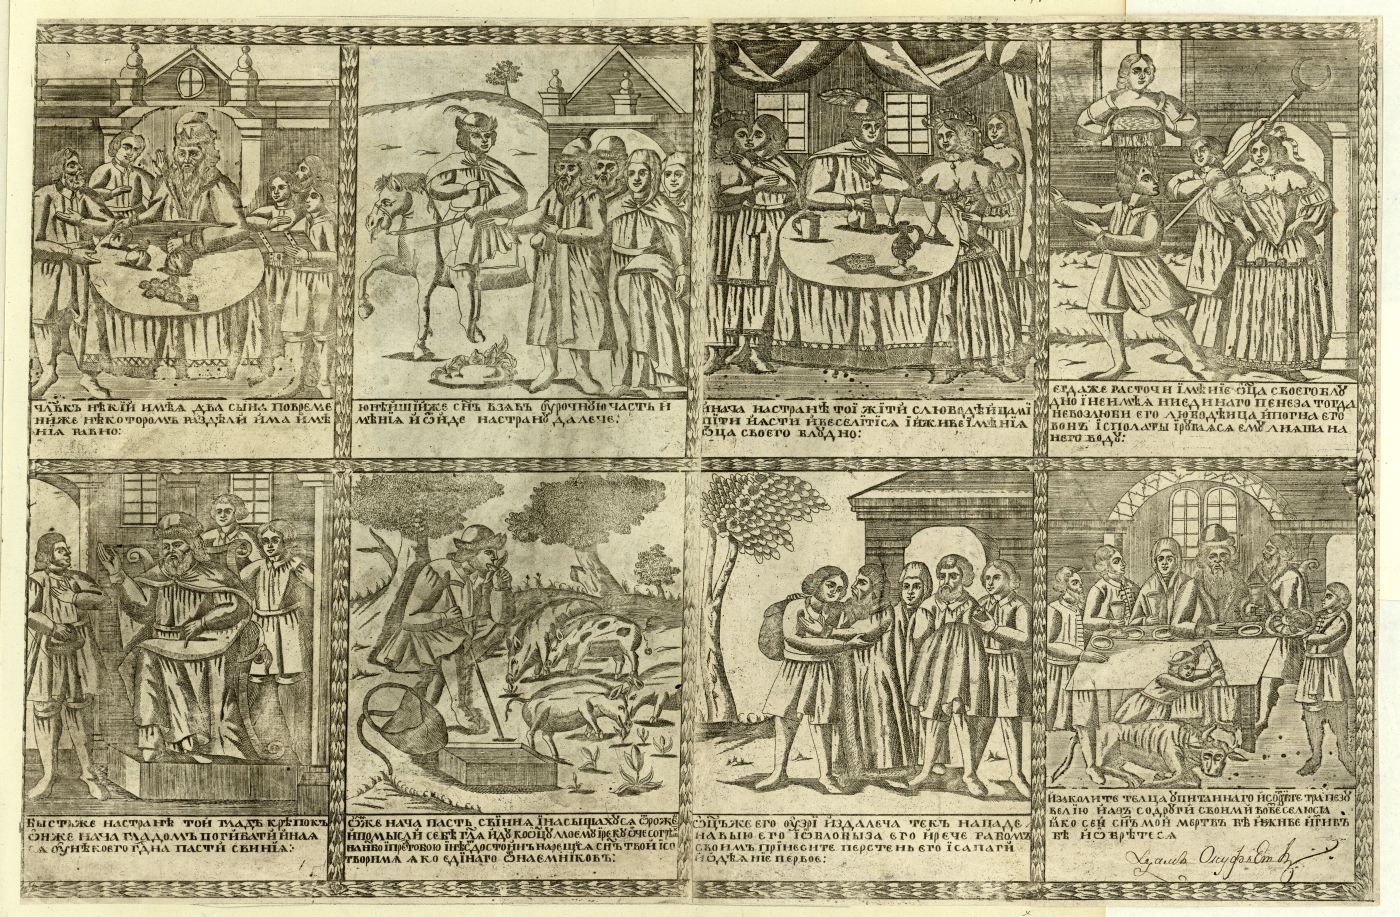 члв҃къ нѣкїй имѣя два сына повреме
ниже нѣкоторомъ раздѣли има имѣ
нїя равно:
юнѣйшїйже сн҃ъ взавъ оурочную часть и
мѣнїя и ѿйде настрану далече:
инача настранѣ тої жїти слюбодѣйцамї
пїти їясти ївеселїтїся їиживе їмѣнїя
ѿца своего блудно:
егдаже расточи їмѣнїе ѿца своего блу
дно їнеимѣя ниединаго пенеза тогда
невозлюби его любодѣица їпогна его
вонъ їсполаты їругаяся ему лияша на
него воду:
бысть же настранѣ той гладъ крѣпокъ
ѿнже нача гладомъ погибати иная
ся оунѣкоего гд҃на пасти свинїя:
ѿже нача пасть свїнїя їнасыщахуся ѿроже
їпомысли себѣ гл҃я йду коѡц҃у моему їреку оч҃е согрѣ
нанб҃о їпретобою їнѣсмь достоинъ нарещися сн҃ъ твой їсо
творима яко едїнаго ѿнаемнїковъ:
ѿц҃ъже его оузрї їздалеча текъ нападе
навыю его їоблобыза его їрече рабомъ
своимъ прїнесите перстень его їсапагї
їодѣянїе первое:
їзаколите телца упитаннаго їсотворите трапезу
велїю їясъ содруги своими возвеселюся
їяко сей сн҃ъ мой мертвъ бѣ їѡживе їгибъ
бѣ їобрѣтеся